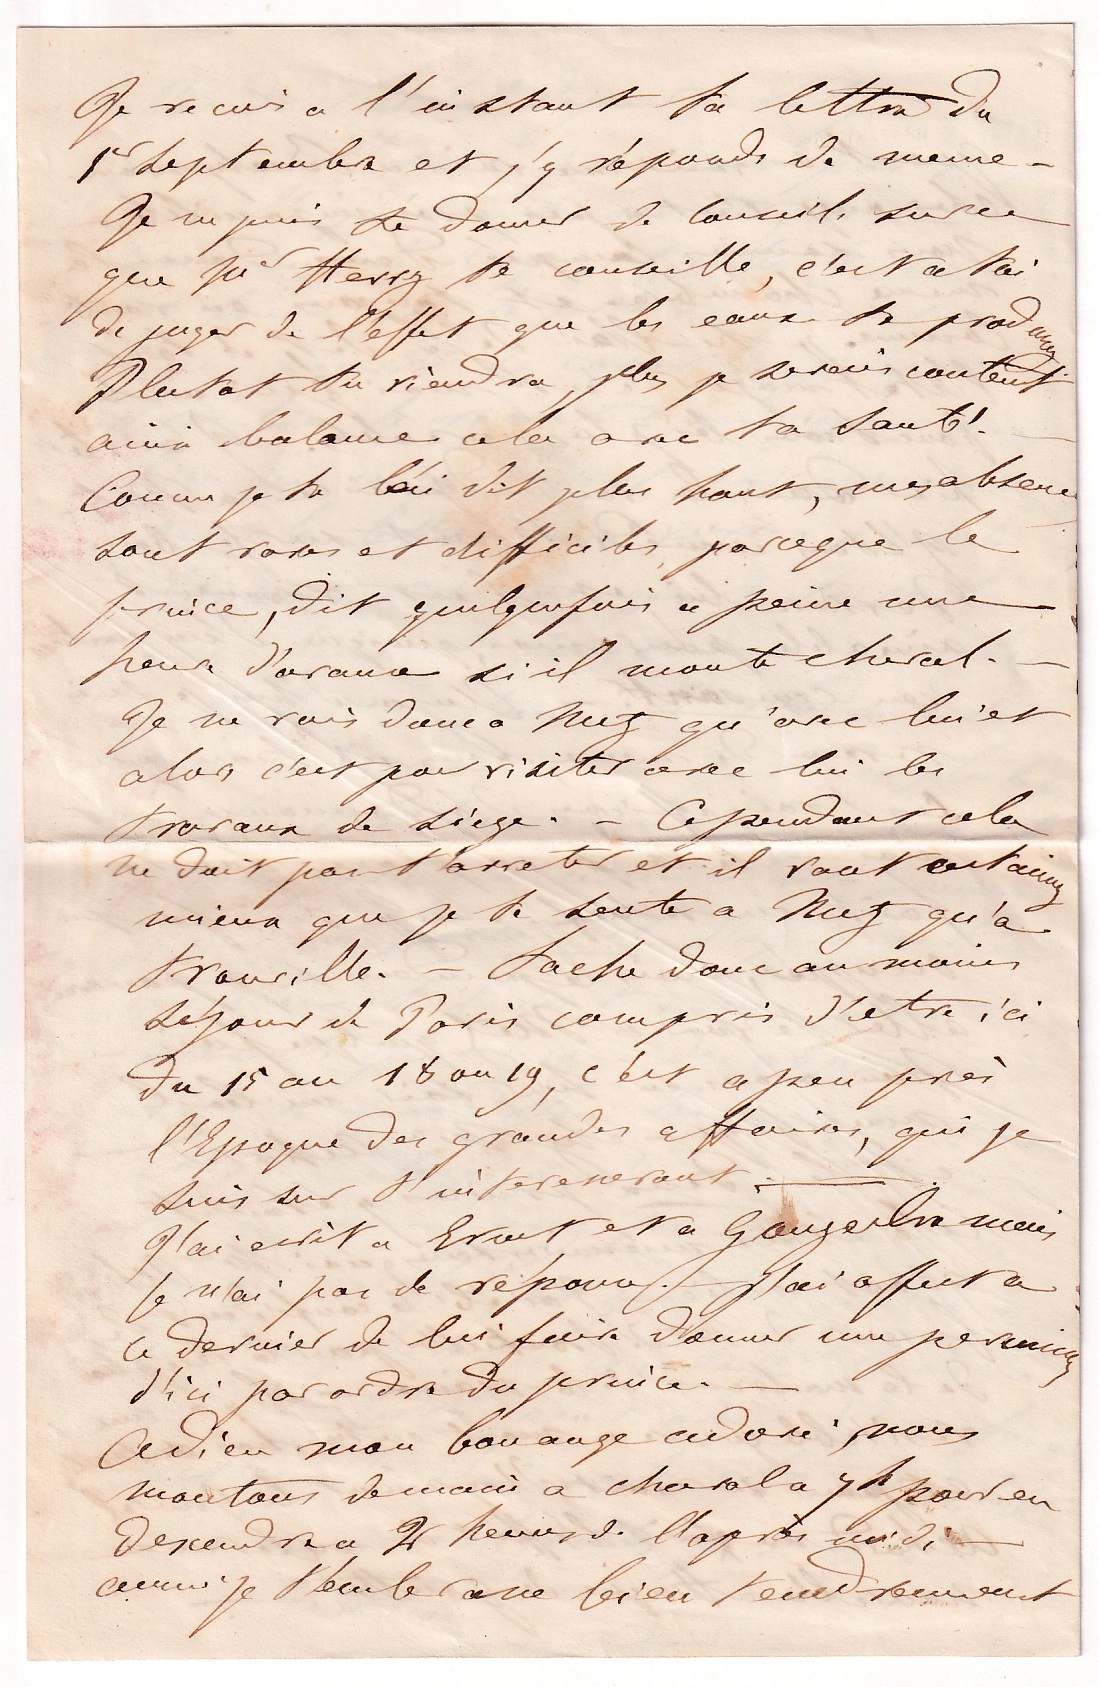 Je recois a l'instant ta lettre du
1er Septembre et j'y réponds de meme –
Je ne puis te donner de conseils sur ce
que Mr Herry te conseille, c'est a toi
de juger de l'effet que les eaux te
Plutot tu viendra, plus je serais content
ainsi balance cela avec ta Santé. –
Comme je te l'ai dit plus haut, mes absences
sont rares et difficiles, parceque le
prince, dit quelquefois a peine une
heure d'avance si il monte cheval. –
Je ne vais donc a Metz qu'avec lui et
alors c'est pour visiter avec lui les
travaux de siége. – Cependant cela
ne doit pas t'arreter et il vaut
mieux que je te sente a Metz qu'a
Trouville. – Tache donc au moins
séjour de Paris compris d'etre ici
du 15 au 18 ou 19, c'est a peu près
l'Epoque des grandes affaires, qui je
suis sur t'interesseront. –
J'ai ecrit a Ernest et a mais
je n'ai pas de réponse. – J'ai offert a
ce dernier de lui faire donner une permission
d'ici par ordre du prince. –
Adieu mon bon ange adoré, nous
montons demain a cheval a 7h pour en
descendre a 2 heures de l'après midi –
aussi je t'embrasse bien tendrement